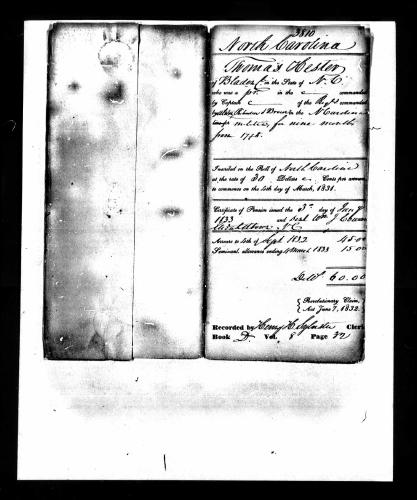 3810
North Carolina
Thomas Hester
of Bladen Co. in the State of N.C.
who was a pri in the c commanded
by Captain c of the Regt commanded
by Robinson & Brown in the N Carolina
militia for nine months
from 1778.
Inscribed on the Roll of North Carolina
at the rate of 30 Dollars c Cents per annum
to commence on the 4th day of March, 1831.
Certificate of Pension issued the 3d day of Jany
1833 and sent Wm J.
N.C.
Arrears to 4th of Sept 1832 45.00
Semi-anl. allowance ending 4 March 1833 15.00
60.00
Revolutionary Claim,
Act June 7, 1832.
Recorded by Clerk
Book D Vol. 8 Page 22